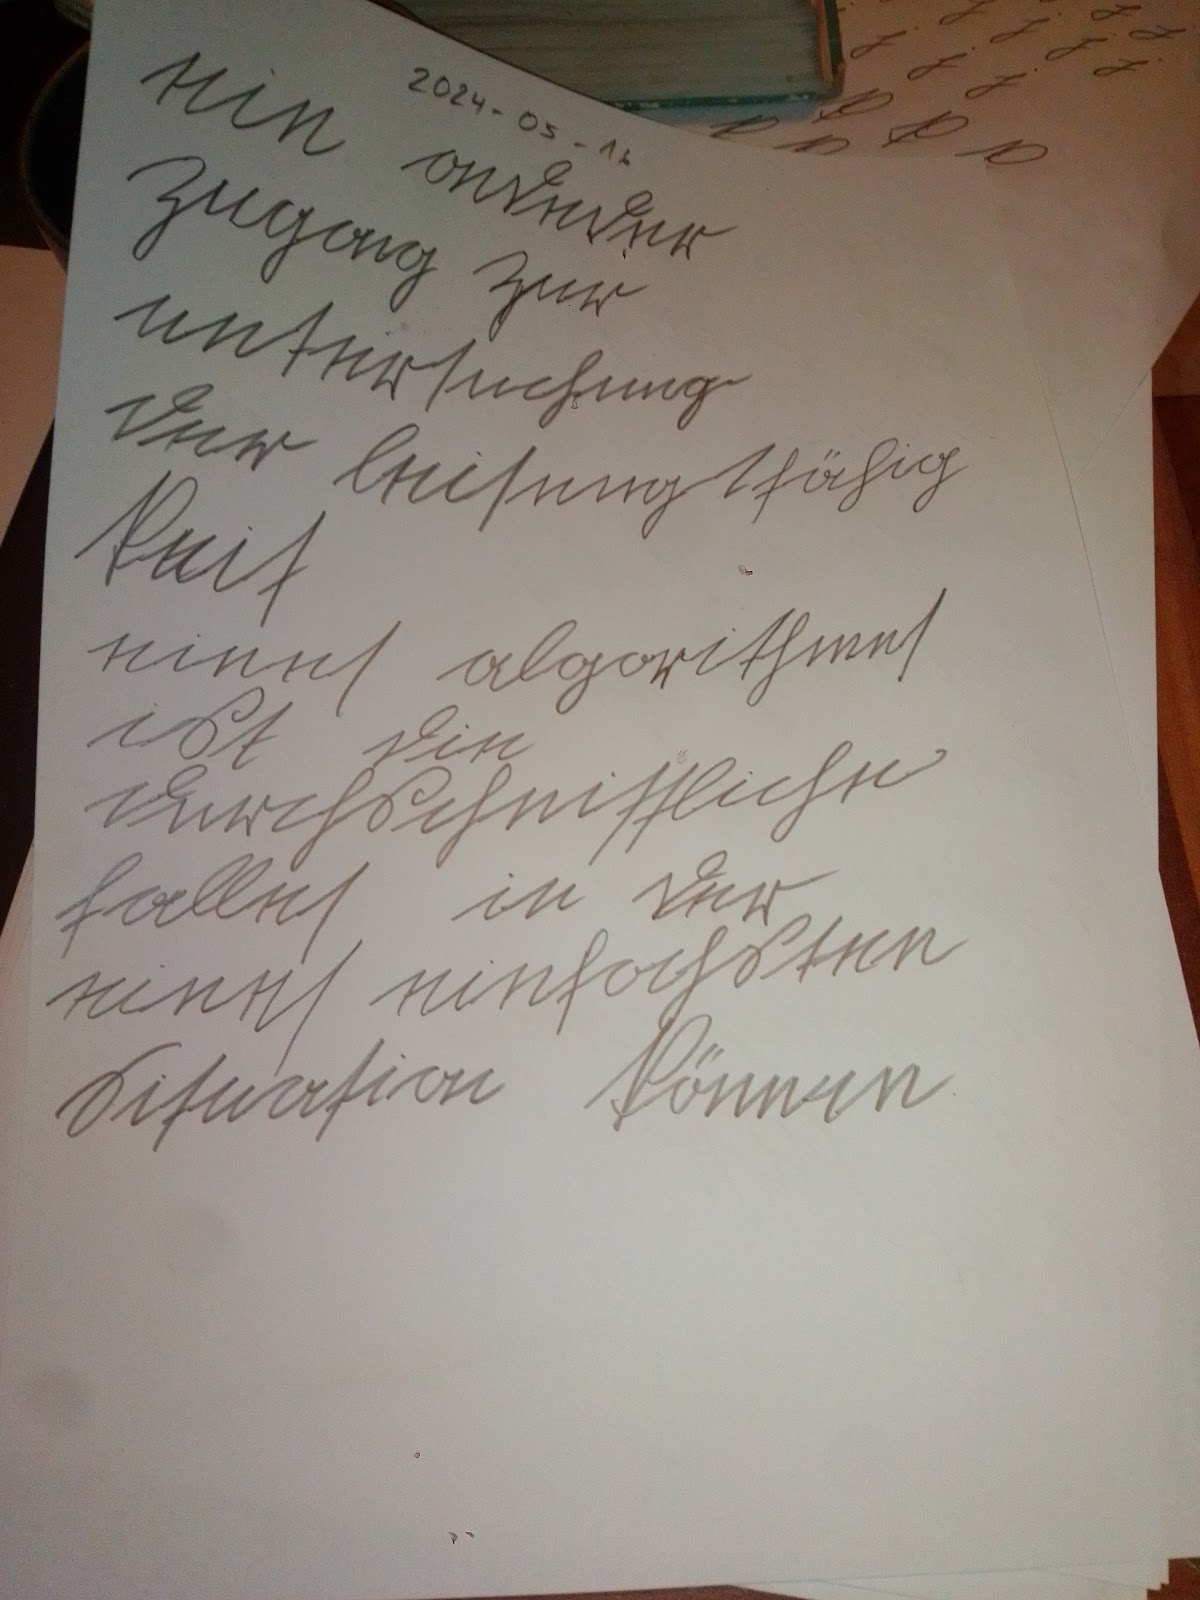 2024-05-16
ein anderer
zugang zur
untersuchung
der leisungsfähig
keit
eines algorithmus
ist die
durchschnittliche
falles in der
eines einfachsten
situation können